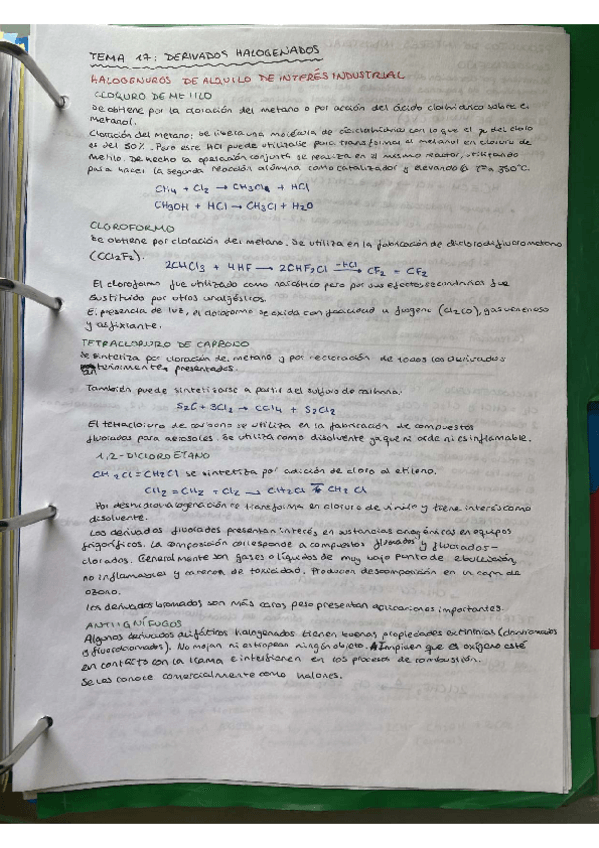 TEMA 17: DERIVADOS HALOGENADOS
HALOGENUROS DE ALQUILO DE INTERÉS INDUSTRIAL
CLORURO DE METILO
Se obtiene por la cloración del metano o por acción del ácido clorhídrico sobre el
metanol.
Cloración del metano: se libera una molécula de ácido clorhídrico con lo que el del cloro
es del 50%. Pero este HCl puede utilizarse para transformar el metanol en cloruro de
metilo. De hecho la operación conjunta se realiza en el mismo reactor, utilizando
para hacer la segunda reacción alúmina como catalizador y elevando la T a 350°C.
CH4 + Cl2 → CH3Cl + HCl
CH3OH + HCl → CH3Cl + H2O
CLOROFORMO
Se obtiene por cloración del metano. Se utiliza en la fabricación de diclorodifluorometano
(CCl2F2).
2CHCl3 + 4HF → 2CHF2Cl -HCl→ CF2 = CF2
El cloroformo fue utilizado como narcótico pero por sus efectos secundarios fue
sustituido por otros analgésicos.
E. presencia de luz, el cloroformo se oxida con facilidad a fosgeno (Cl2CO), gas venenoso
y asfixiante.
TETRACLORURO DE CARBONO
Se sintetiza por cloración de metano y por recloración de todos los derivados
anteriormente presentados.
También puede sintetizarse a partir del sulfuro de carbono:
S2C + 3Cl2 → CCl4 + S2Cl2
El tetracloruro de carbono se utiliza en la fabricación de compuestos
fluorados para aerosoles. Se utiliza como disolvente ya que ni arde ni es inflamable.
1,2-DICLOROETANO
CH2Cl=CH2Cl se sintetiza por adición de cloro al etileno.
CH2=CH2 + Cl2 → CH2Cl CH2Cl
Por deshidrohalogenación se transforma en cloruro de vinilo y tiene interés como
disolvente.
Los derivados fluorados presentan interés en sustancias criogénicas en equipos
frigoríficos. La composición corresponde a compuestos fluorados y fluorados-
clorados. Generalmente son gases o líquidos de muy bajo punto de ebullición,
no inflamables y carecen de toxicidad. Producen descomposición en la capa de
ozono.
Los derivados bromados son más caros pero presentan aplicaciones importantes.
ANTIIGNÍFUGOS
Algunos derivados alifáticos halogenados tienen buenas propiedades extintoras
o fluoroclorados). No mojan ni estropean ningún objeto. Impiden que el oxígeno esté
en contacto con la llama e interfieren en los procesos de combustión.
Se les conoce comercialmente como halones.